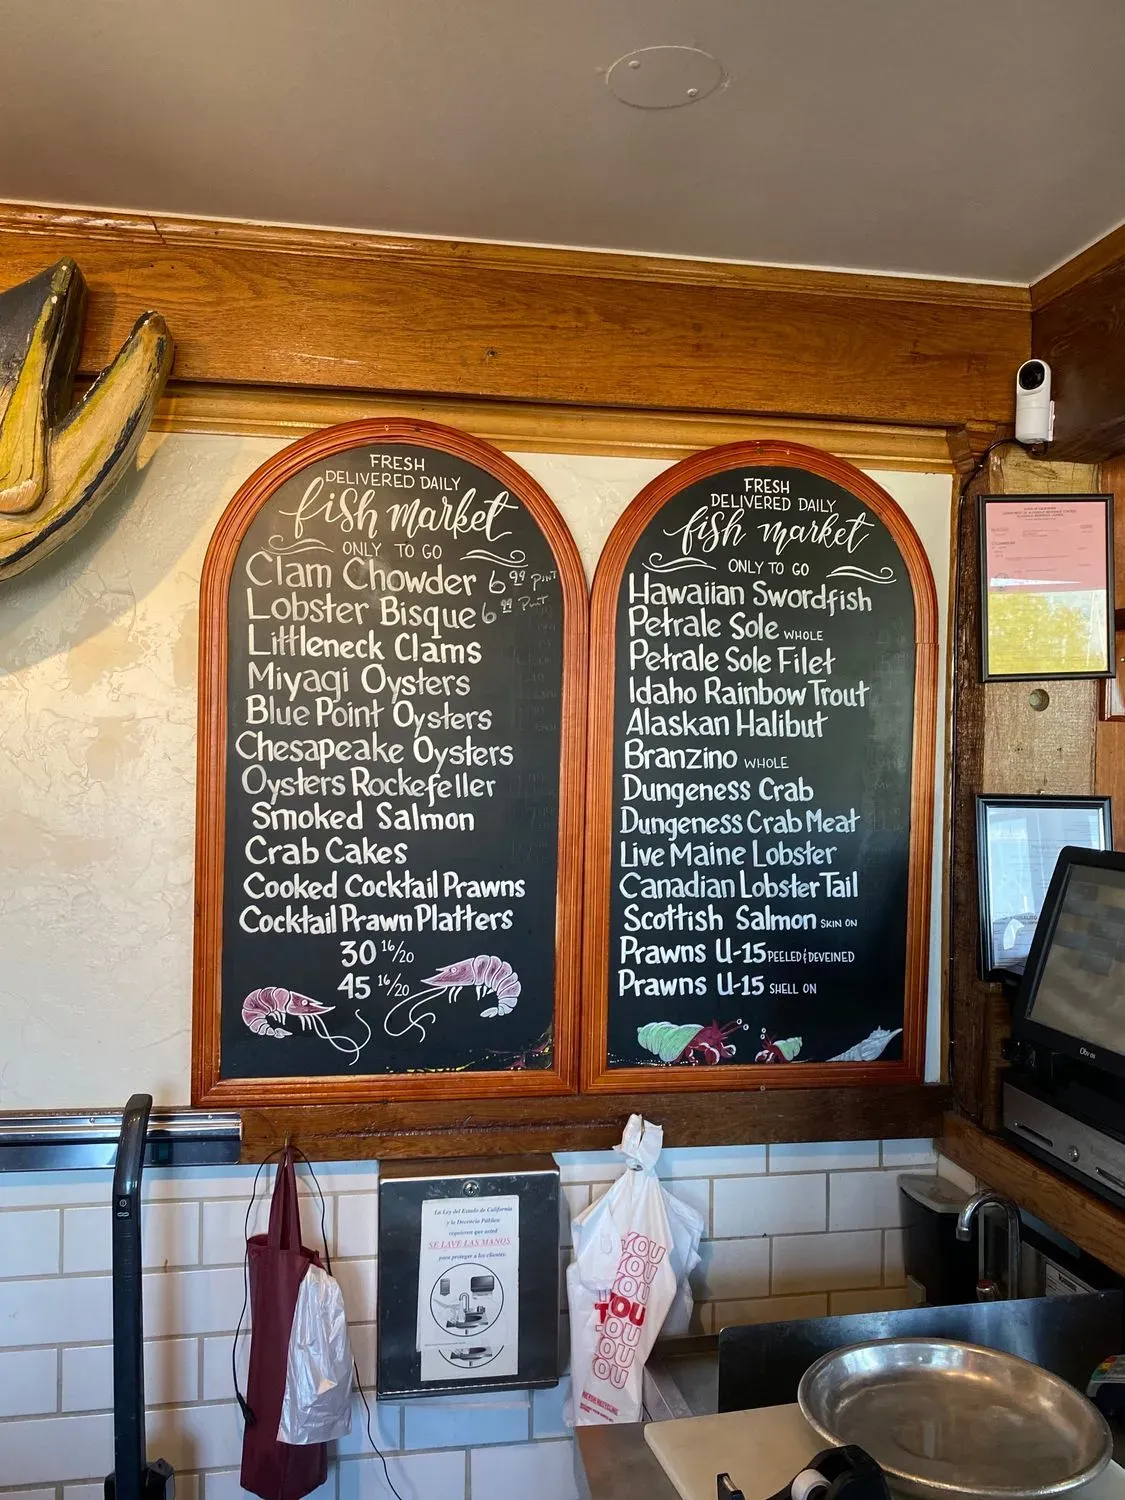 FRESH
DELIVERED DAILY
fish market
ONLY TO GO
Clam Chowder 6 99 Pint
Lobster Bisque 6 99 Pint
Littleneck Clams
Miyagi Oysters
Blue Point Oysters
Chesapeake Oysters
Oysters Rockefeller
Smoked Salmon
Crab Cakes
Cooked Cocktail Prawns
Cocktail Prawn Platters
30 16/20
45 16/20
FRESH
DELIVERED DAILY
fish market
ONLY TO GO
Hawaiian Swordfish
Petrale Sole WHOLE
Petrale Sole Filet
Idaho Rainbow Trout
Alaskan Halibut
Branzino WHOLE
Dungeness Crab
Dungeness Crab Meat
Live Maine Lobster
Canadian Lobster Tail
Scottish Salmon SKIN ON
Prawns U-15 PEELED & DEVEINED
Prawns U-15 SHELL ON
La Ley del Estado de California
y la Decencia Pública
requieren que usted
SE LAVE LAS MANOS
para proteger a los clientes.
YOU
YOU
YOU
YOU
YOU
OU
OU
OU